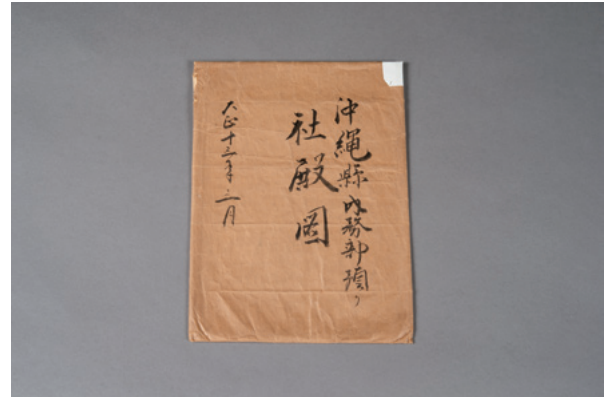 沖縄縣内務部預り
社殿図
大正十三年三月